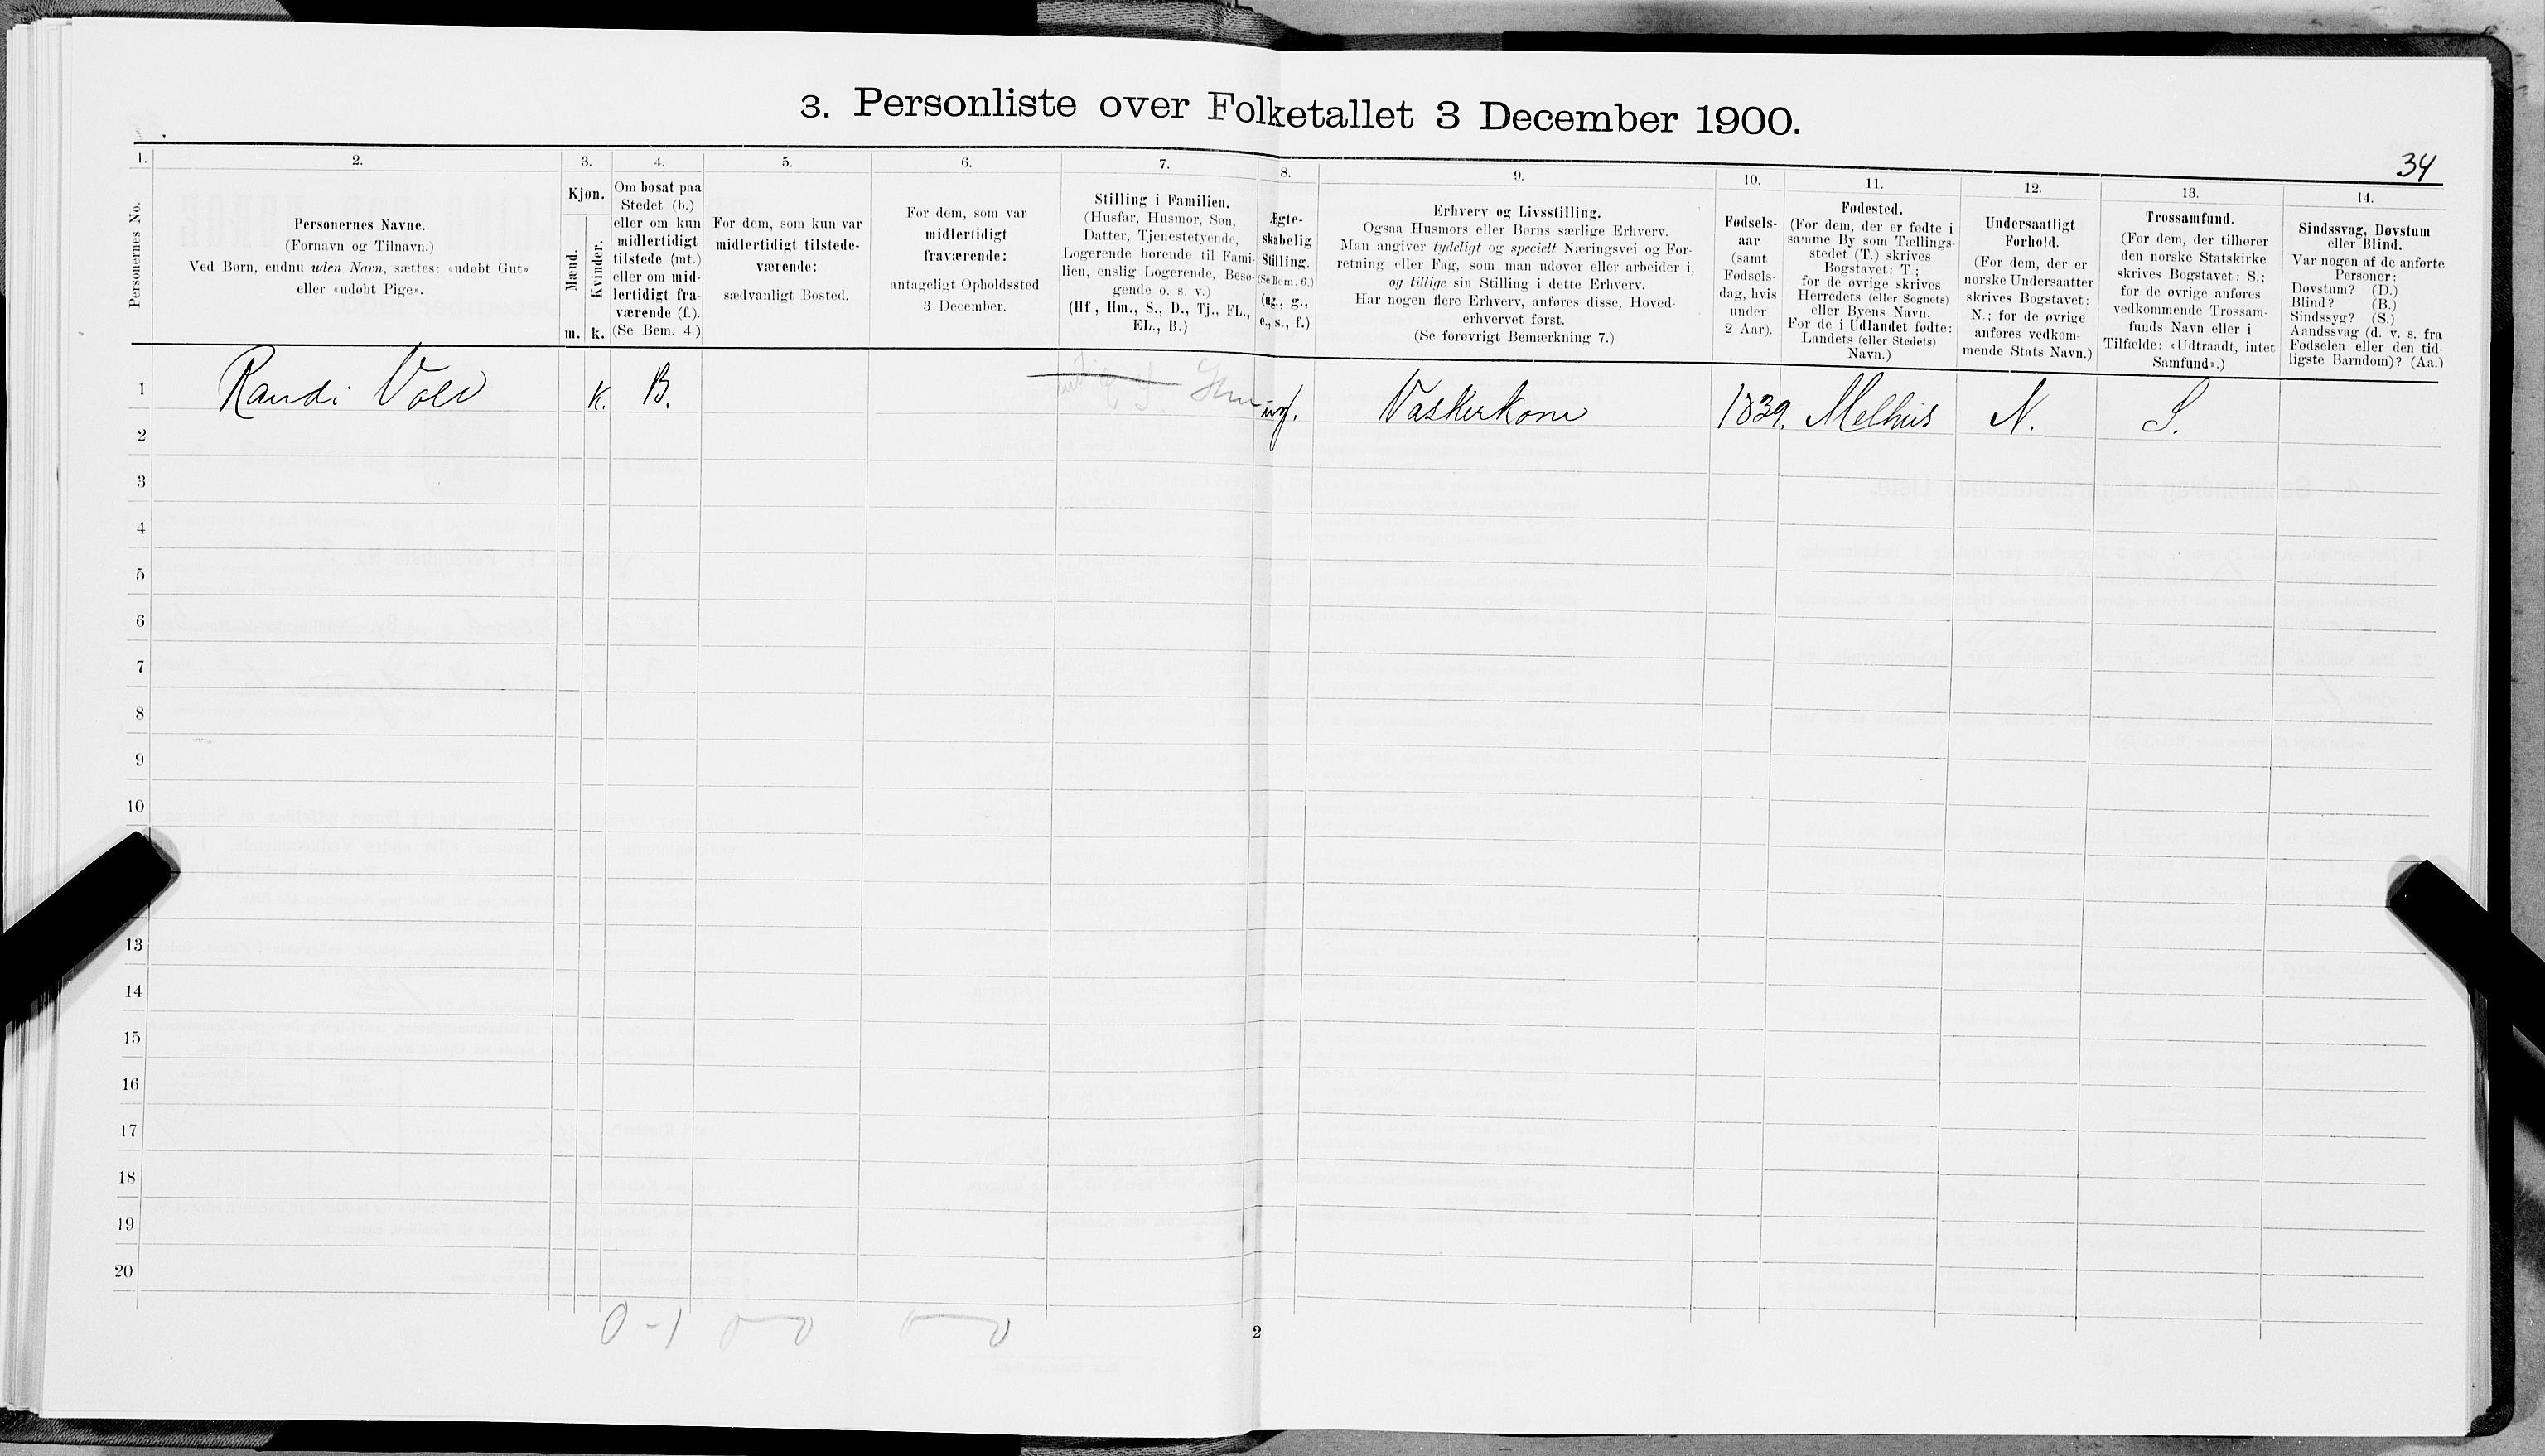 3. Personliste over Folketallet 3 December 1900.
34
1.
Personernes No.
2.
Personernes Navne.
(Fornavn og Tilnavn.)
Ved Børn, endnu uden Navn, sættes: «udøbt Gut»
eller «udøbt Pige».
3.
Kjøn.
Mænd.
Kvinder.
m.
k.
4.
Om bosat paa
Stedet (b.)
eller om kun
midlertidigt
tilstede (mt.)
eller om mid-
lertidigt fra-
værende (f.).
(Se Bem. 4.)
5.
For dem, som kun var
midlertidigt tilstede-
værende:
sædvanligt Bosted.
6.
For dem, som var
midlertidigt
fraværende:
antageligt Opholdssted
3 December.
7.
Stilling i Familien.
(Husfar, Husmor, Søn,
Datter, Tjenestetyende,
Logerende hørende til Fami-
lien, enslig Logerende, Besø-
gende o. s. v.)
(Hf, Hm., S., D., Tj., FL.,
EL., B.)
8.
Ægte-
skabelig
Stilling.
(Se Bem. 6.)
(ug., g.,
e., s., f.)
9.
Erhverv og Livsstilling.
Ogsaa Husmors eller Børns særlige Erhverv.
Man angiver tydeligt og specielt Næringsvei og For-
retning eller Fag, som man udøver eller arbeider i,
og tillige sin Stilling i dette Erhverv.
Har nogen flere Erhverv, anføres disse, Hoved-
erhvervet først.
(Se forøvrigt Bemærkning 7.)
10.
Fødsels-
aar
(samt
Fødsels-
dag, hvis
under
2 Aar).
11.
Fødested.
(For dem, der er fødte i
samme By som Tællings-
stedet (T.) skrives
Bogstavet: T;
for de øvrige skrives
Herredets (eller Sognets)
eller Byens Navn.
For de i Udlandet fødte:
Landets (eller Stedets)
Navn.)
12.
Undersaatligt
Forhold.
(For dem, der er
norske Undersaatter
skrives Bogstavet:
N.; for de øvrige
anføres vedkom-
mende Stats Navn.)
13.
Trossamfund.
(For dem, der tilhører
den norske Statskirke
skrives Bogstavet: S.;
for de øvrige anføres
vedkommende Trossam-
funds Navn eller i
Tilfælde: «Udtraadt, intet
Samfund».)
14.
Sindssvag, Døvstum
eller Blind.
Var nogen af de anførte
Personer:
Døvstum? (D.)
Blind? (B.)
Sindssyg? (S.)
Aandssvag (d. v. s. fra
Fødselen eller den tid-
ligste Barndom)? (Aa.)
1 Randi Vold K. B. Hm ug. Vaskerkone 1839. Melhus N. S.
2
3
4
5
6
7
8
9
10
13
14
15
16
17
18
19
20
0-1
2